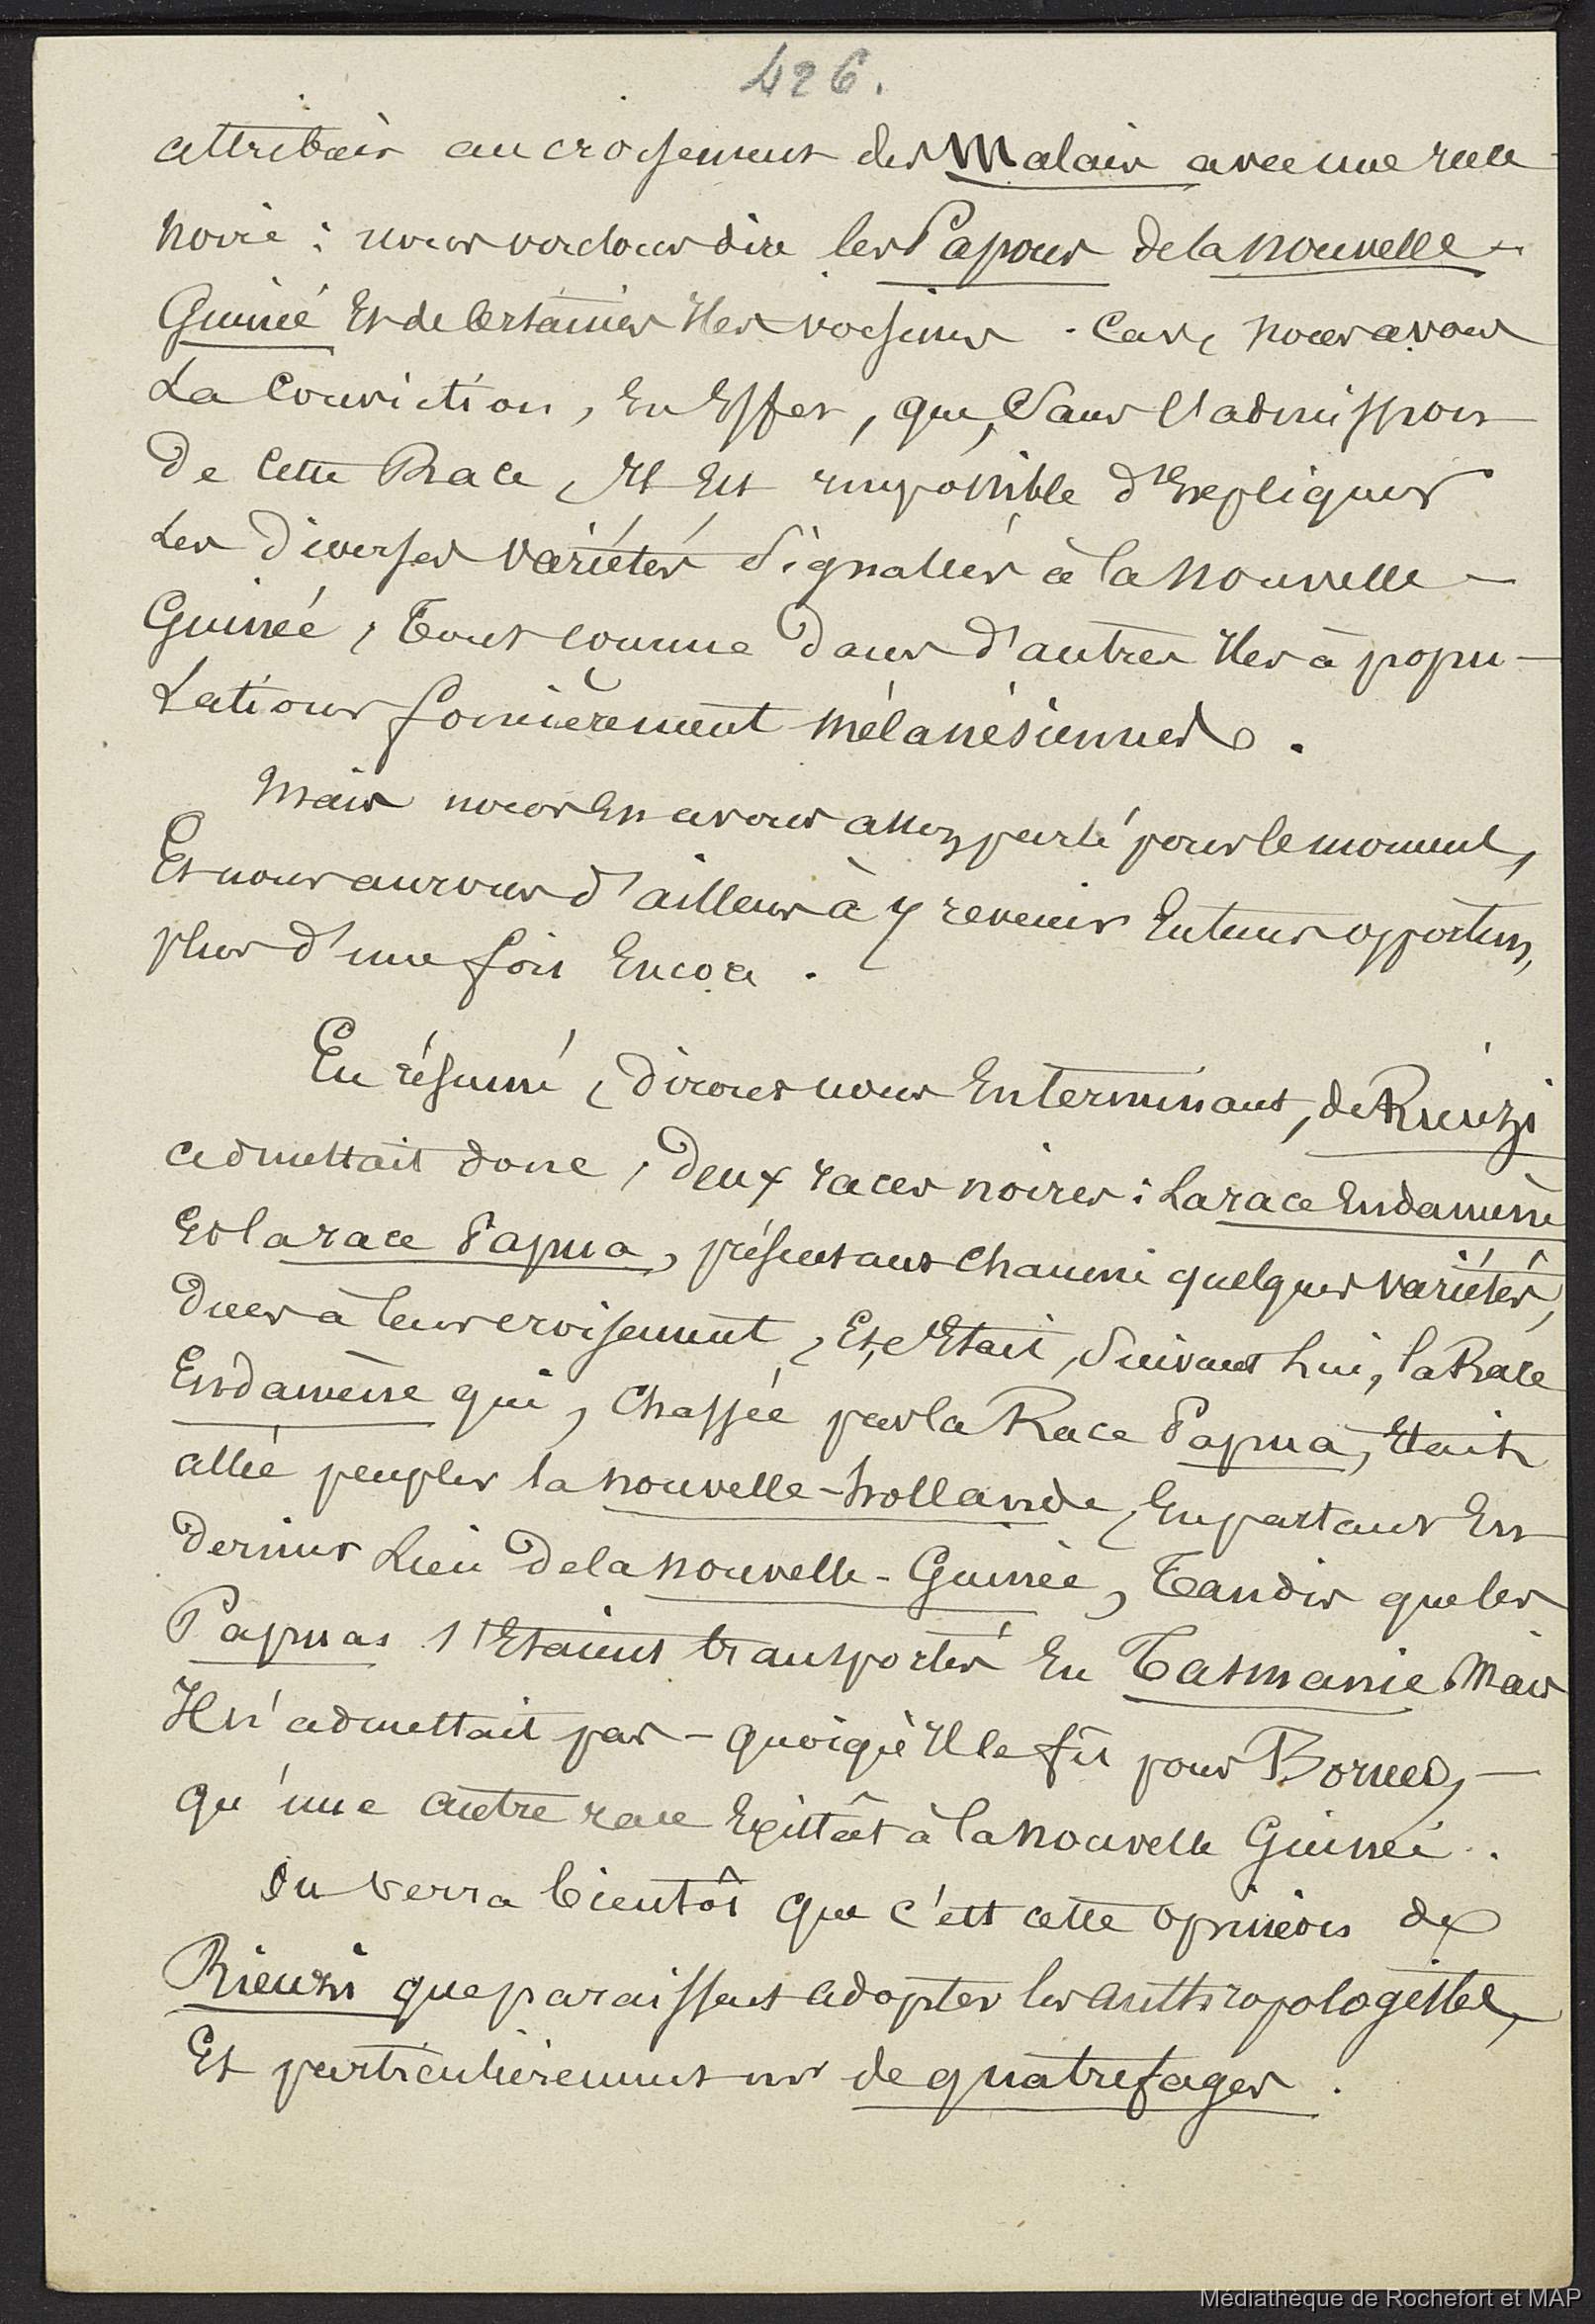 426.
attribués au croisement des Malais avec une race
noire ; nous voulons dire les Papous de la nouvelle-
Guinée Et de certaines Iles voisines. Car, nous avons
La Conviction, En Effet, que, Sans l'admission
De Cette Race, Il Est impossible d'Expliquer
Les Diverses variétés Signalées à la nouvelle-
Guinée, Tout comme dans d'autres Iles à popu-
Lations foncièrement mélanésiennes.
Mais nous En avons assez parlé pour le moment,
Et nous aurons d'ailleurs à y revenir En temps opportun,
plus d'une fois Encore.
En résumé, dirons nous En terminant, de Rienzi
admettait donc, Deux races noires : La race Endamène
Et la race Papua, présentant Chacune quelques variétés,
Dues à leur croisement, Et, c'Etait, Suivant Lui, la Race
Endamène qui, Chassée par la Race Papua, Etait
allée peupler la nouvelle-hollande, En partant En
Dernier Lieu De la nouvelle-Guinée, Tandis que les
Papuas s'Etaient transportés En Tasmanie. Mais
Il n'admettait pas - quoiqu'Il le fit pour Bornéo, -
qu'une autre race Existât à la nouvelle Guinée.
On verra bientôt que c'est cette opinion de
Rienzi que paraissent adopter les anthropologistes,
Et particulièrement mr de quatrefages.
Médiathèque de Rochefort et MAP